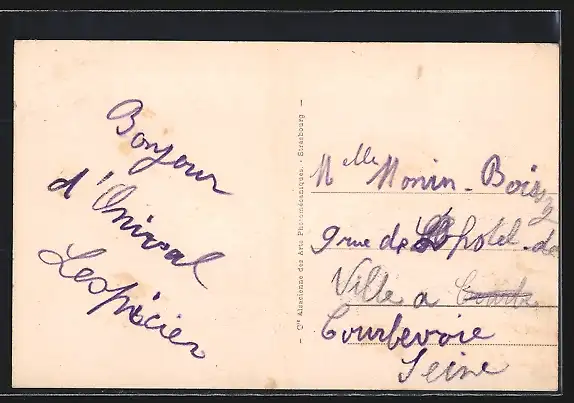 Bonjour
d'Onival
Lespicier
— Cie Alsacienne des Arts Photomécaniques. - Strasbourg —
Melle Monin - Boissy
9 rue de l'hotel - de
Ville a Courbe
Courbevoie
Seine